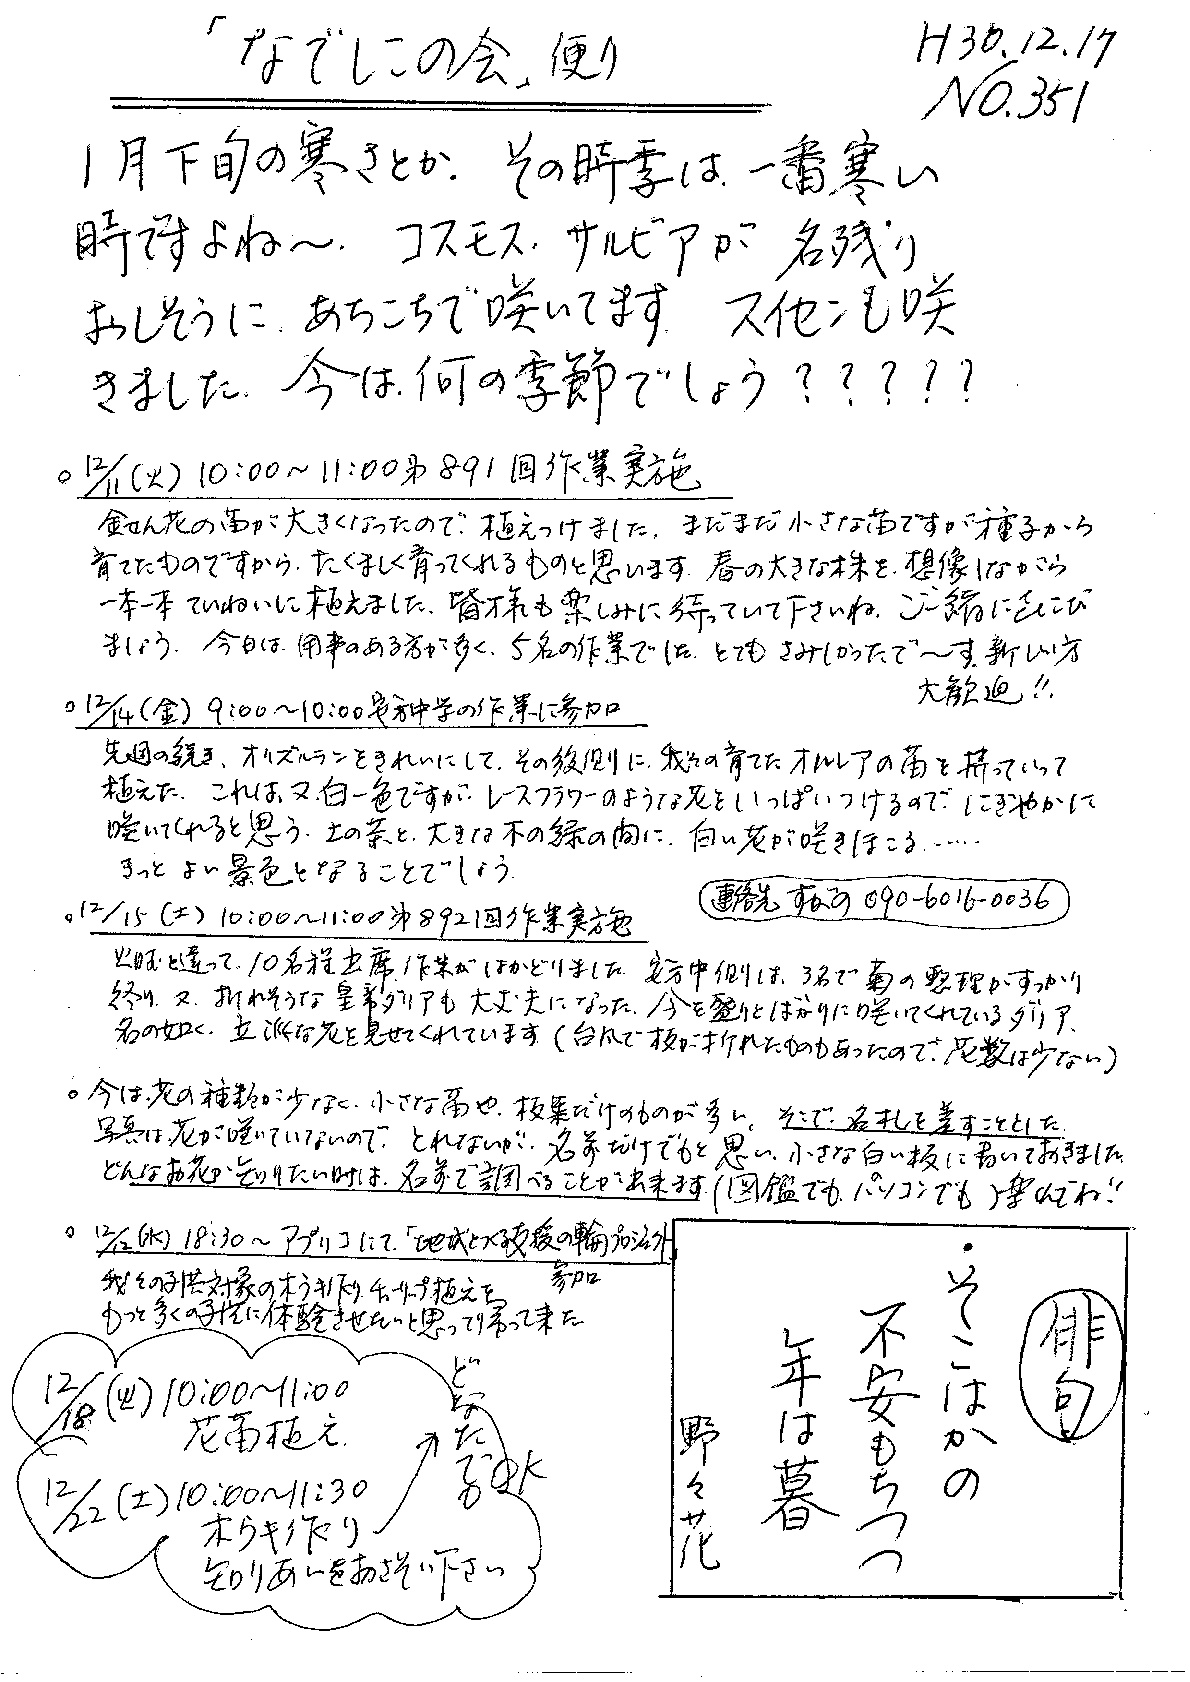 「なでしこの会」便り
H30.12.17
NO.351
1月下旬の寒さとか、その時季は、一番寒い
時ですよね〜、コスモス、サルビアが名残り
おしそうに、あちこちで咲いてます スイセンも咲
きました、今は、何の季節でしょう?????
○12/11(火)10:00〜11:00第891回作業実施
金せん花の苗が大きくなったので、植えつけました、まだまだ小さな苗ですが種子から
育てたものですから、たくましく育ってくれるものと思います、春の大きな株を、想像しながら
一本一本ていねいに植えました、皆様も楽しみに待っていて下さいね、ご一緒によろこび
ましょう、今日は、用事のある方が多く、5名の作業でした、とてもさみしかったで〜す、新しい方
大歓迎!!
○12/14(金)9:00〜10:00安方中学の作業に参加
先週の続き、オリズルランをきれいにして、その後側に、我々の育てたオルレアの苗を持っていって
植えた、これは、又、白一色ですが、レースフラワーのような花をいっぱいつけるので、にぎやかに
咲いてくれると思う、土の茶と、大きな木の緑の間に、白い花が咲きほこる……
きっとよい景色となることでしょう
連絡先 090-6016-0036
○12/15(土)10:00〜11:00第892回作業実施
火曜と違って、10名程出席、作業がはかどりました、安方中側は、3名で菊の整理がすっかり
終り、又、折れそうな皇帝ダリアも大丈夫になった、今を盛りとばかりに咲いてくれているダリア、
名の如く、立派な花を見せてくれています(台風で枝が折れたものもあったので、花数は少ない)
○今は、花の種類が少なく、小さな苗や、枝葉だけのものが多い、そこで、名札を差すこととした
写真は花が咲いていないので、とれないが、名前だけでもと思い、小さな白い板に書いておきました
どんなお花か知りたい時は、名前で調べることが出来ます(図鑑でも、パソコンでも)楽しんでね!!
○12/12(水)18:30〜アプリコにて「地域とつくる支援の輪プロジェクト
参加
我々の子供対象の木うき作り、チューリップ植えを
もっと多くの子供に体験させたいと思って帰って来た
12/18(火)10:00〜11:00
花苗植え
12/22(土)10:00〜11:30
木うき作り
知りあいをおさそい下さい
どなたでもOK
俳句
・そこはかの
不安もちつつ
年は暮
野々花